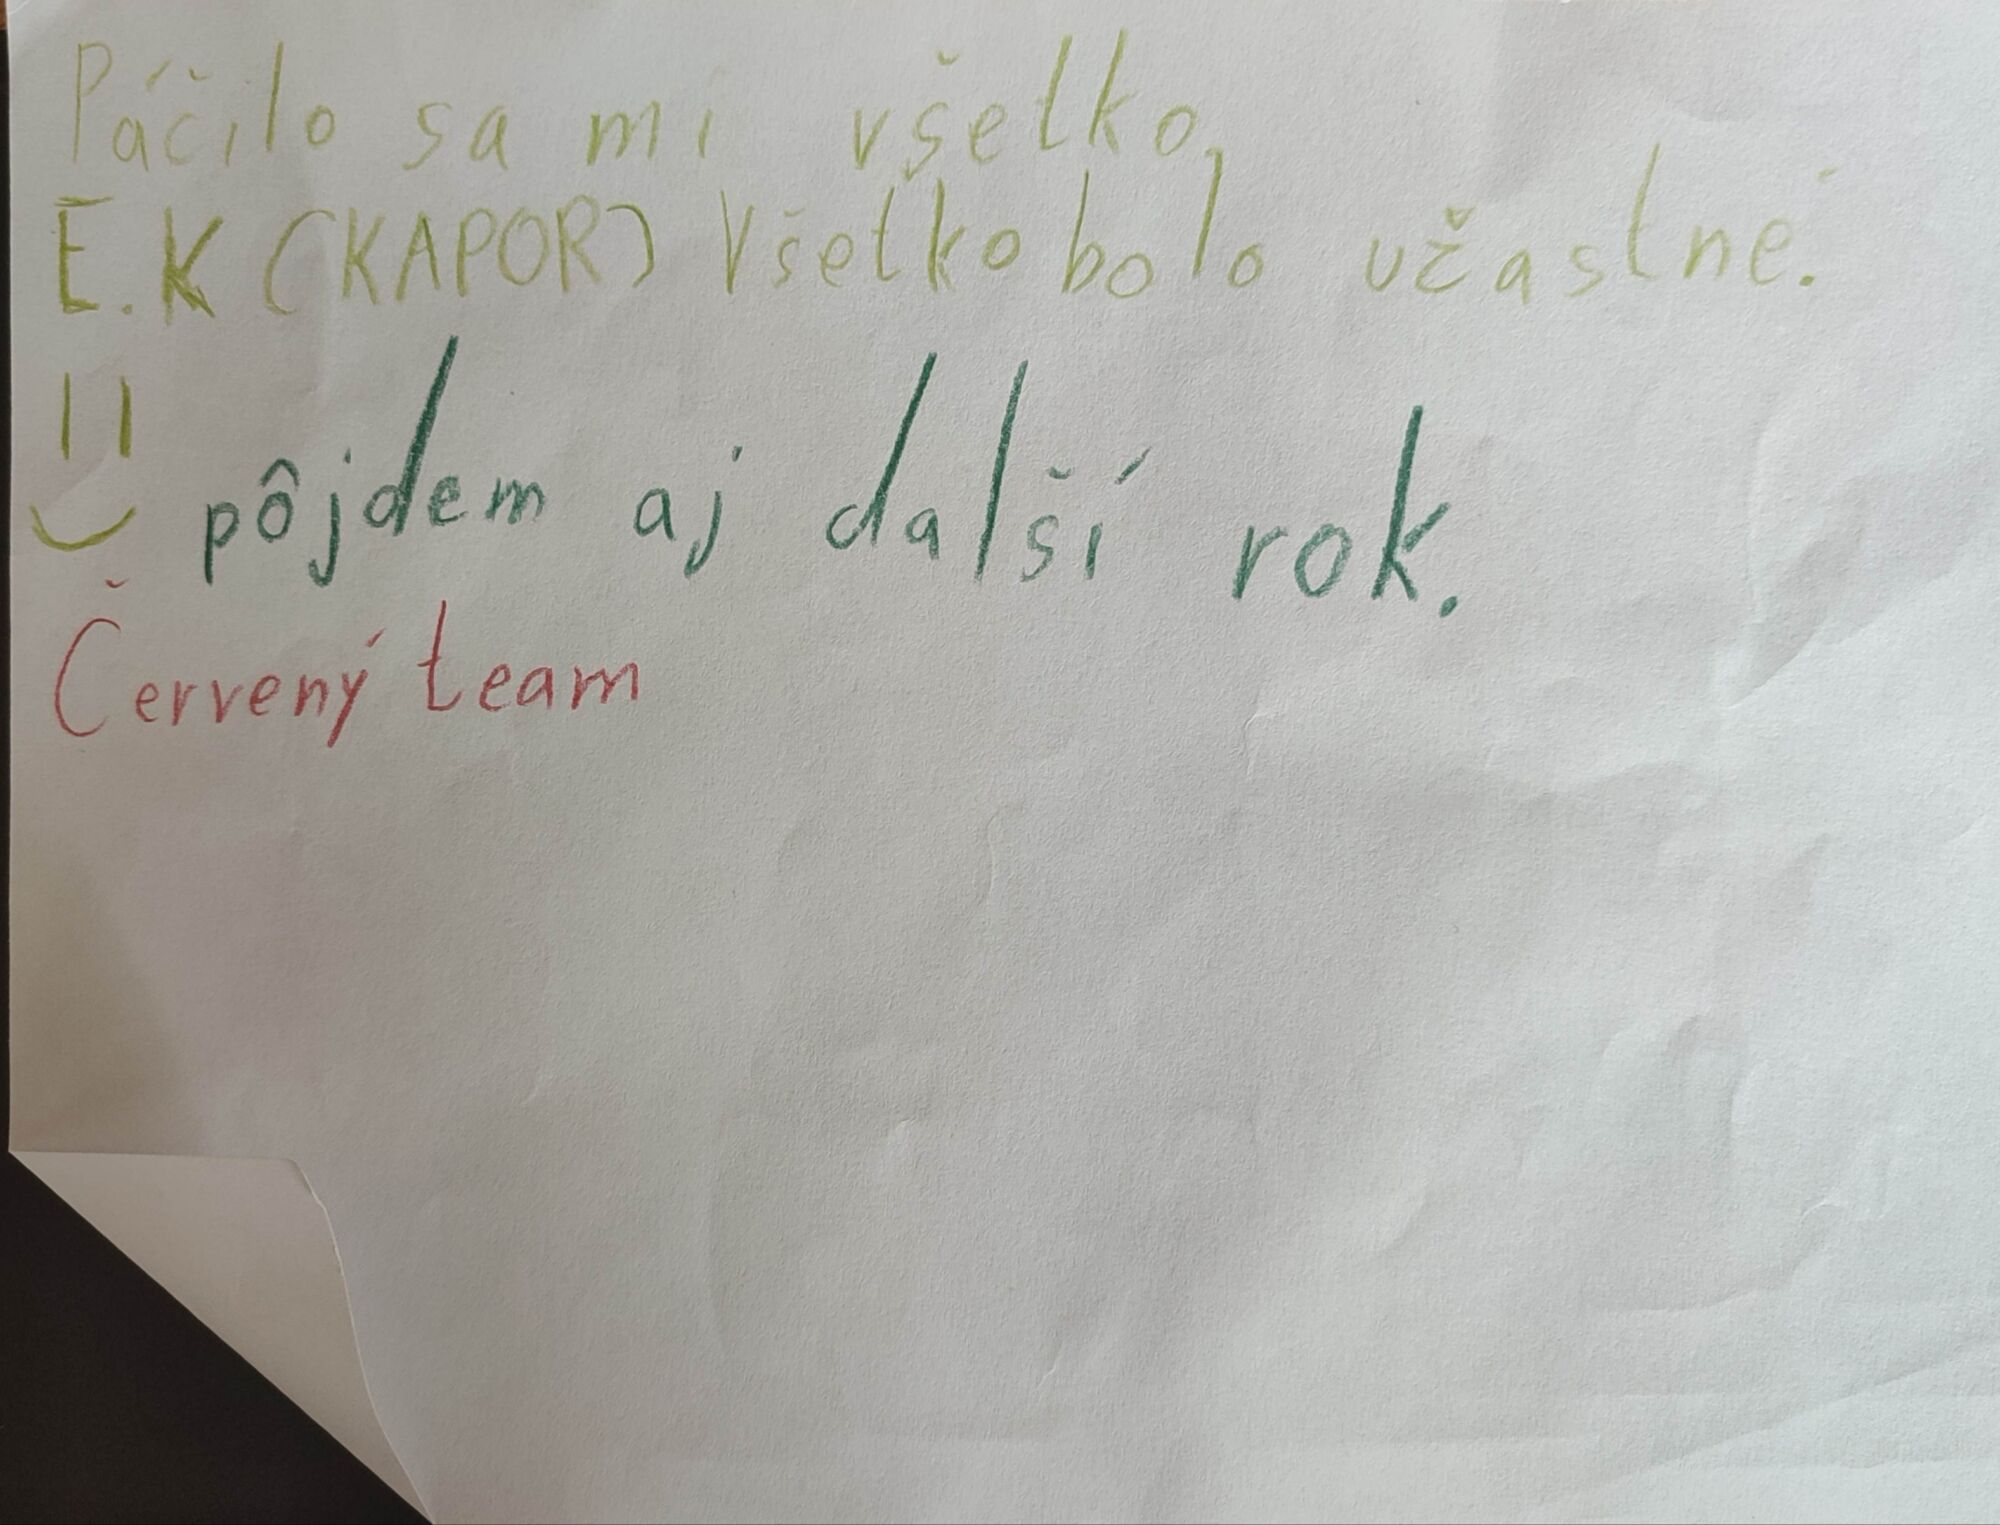 Páčilo sa mi všetko,
E.K (KAPOR) Všetko bolo užastné.
pôjdem aj další rok.
Červený team